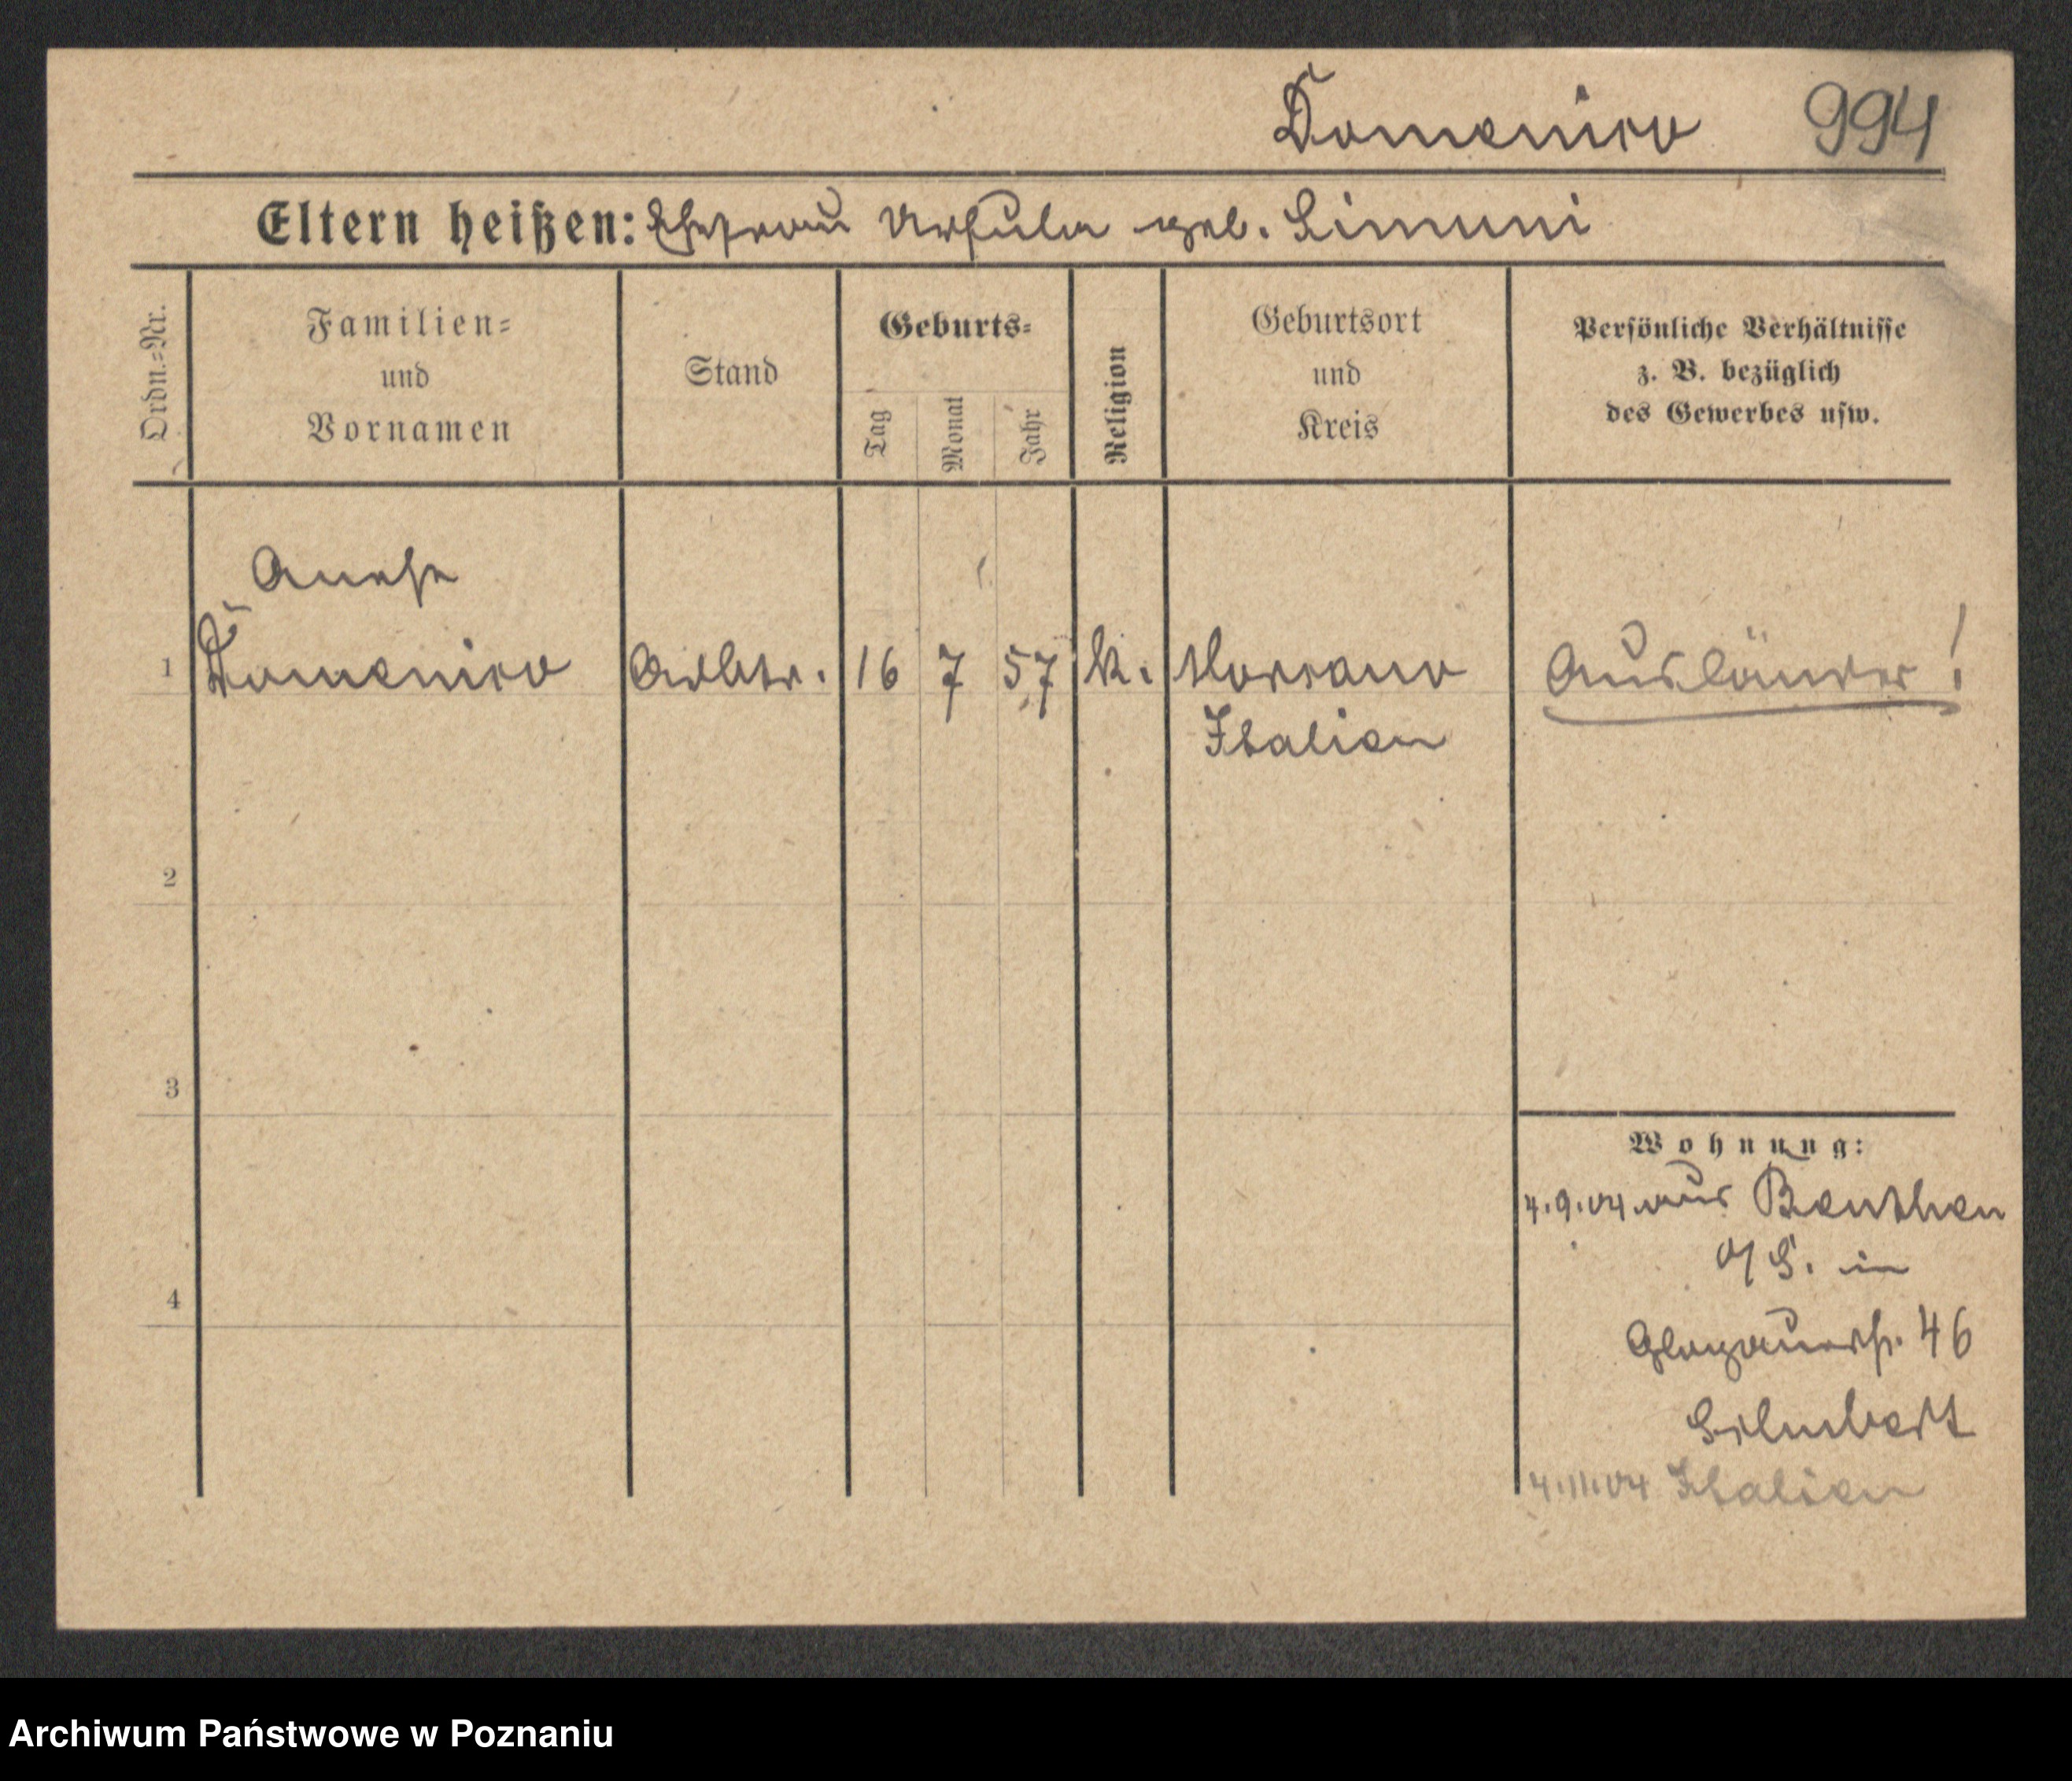 Domenico 994
Eltern heißen: Ehefrau Ursula geb. Limuni
Ordn.-Nr.
Familien-
und
Vornamen
Stand
Geburts-
Tag
Monat
Jahr
Religion
Geburtsort
und
Kreis
Persönliche Verhältnisse
z. B. bezüglich
des Gewerbes usw.
1 Domenico 16 7 57 k. Ausländer!
Italien
2
3
4
Wohnung:
4.9.04 aus Beuthen
O/S. in
Glogauerstr. 46
4.11.04 Italien
Archiwum Państwowe w Poznaniu